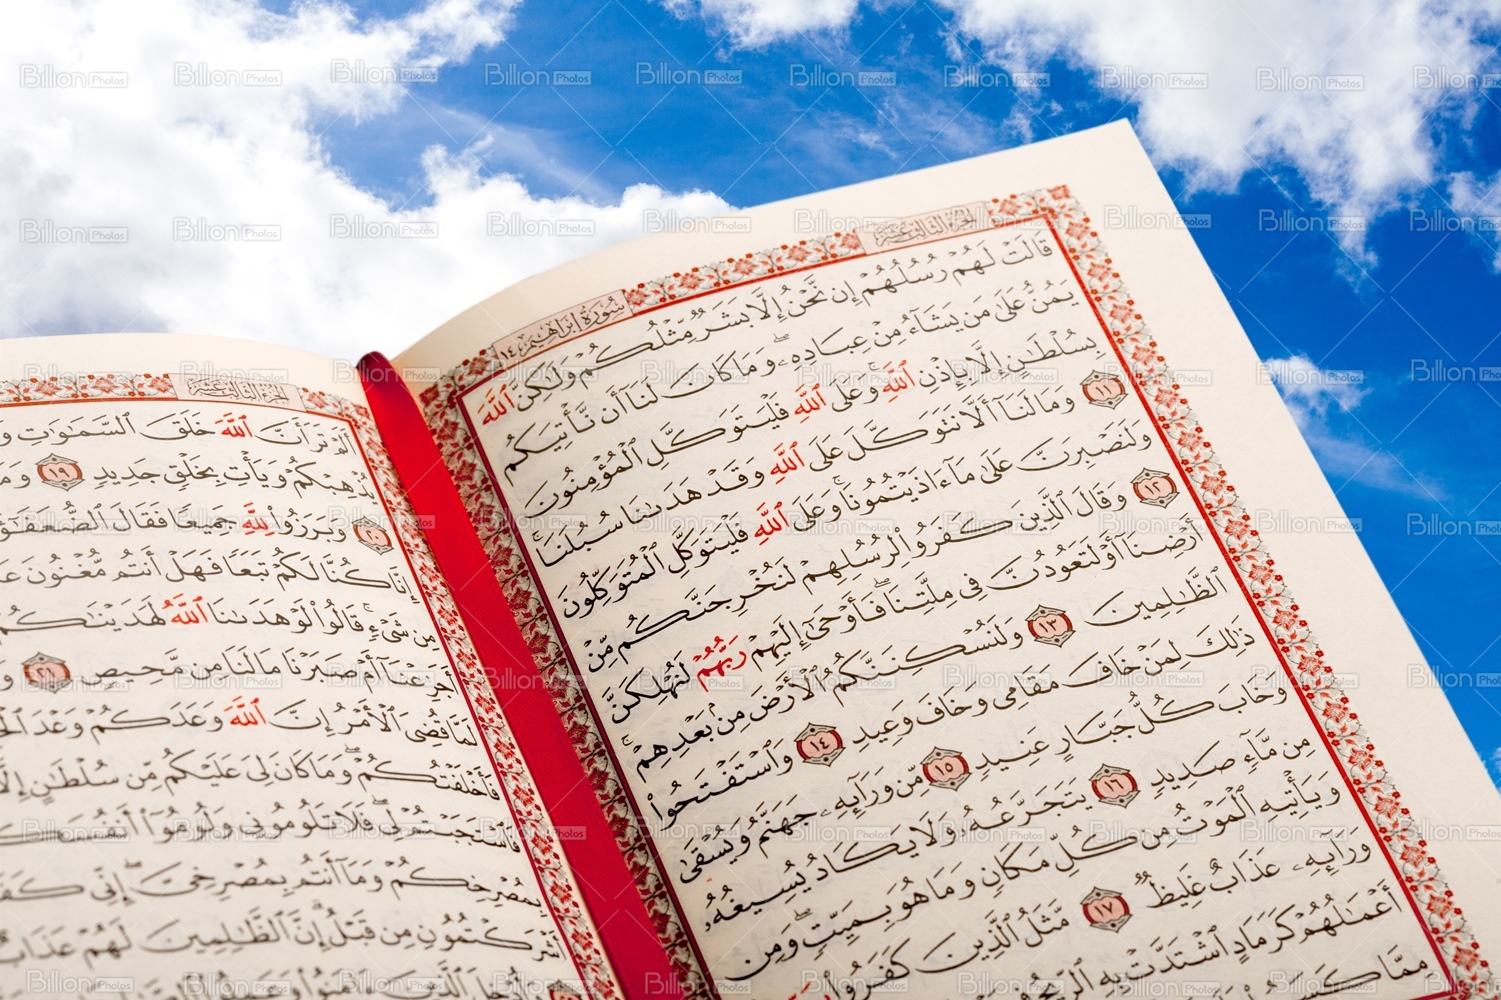 سُورَةُ إِبْرَاهِيمَ ١٤
الجُزْءُ الثَّالِثَ عَشَرَ
قَالَتْ لَهُمْ رُسُلُهُمْ إِن نَّحْنُ إِلَّا بَشَرٌ مِّثْلُكُمْ وَلَٰكِنَّ ٱللَّهَ
يَمُنُّ عَلَىٰ مَن يَشَآءُ مِنْ عِبَادِهِۦ ۖ وَمَا كَانَ لَنَآ أَن نَّأْتِيَكُم
بِسُلْطَٰنٍ إِلَّا بِإِذْنِ ٱللَّهِ ۚ وَعَلَى ٱللَّهِ فَلْيَتَوَكَّلِ ٱلْمُؤْمِنُونَ
١١ وَمَا لَنَآ أَلَّا نَتَوَكَّلَ عَلَى ٱللَّهِ وَقَدْ هَدَىٰنَا سُبُلَنَا ۚ
وَلَنَصْبِرَنَّ عَلَىٰ مَآ ءَاذَيْتُمُونَا ۚ وَعَلَى ٱللَّهِ فَلْيَتَوَكَّلِ ٱلْمُتَوَكِّلُونَ
١٢ وَقَالَ ٱلَّذِينَ كَفَرُوا۟ لِرُسُلِهِمْ لَنُخْرِجَنَّكُم مِّنْ
أَرْضِنَآ أَوْ لَتَعُودُنَّ فِى مِلَّتِنَا ۖ فَأَوْحَىٰٓ إِلَيْهِمْ رَبُّهُمْ لَنُهْلِكَنَّ
ٱلظَّٰلِمِينَ ١٣ وَلَنُسْكِنَنَّكُمُ ٱلْأَرْضَ مِنۢ بَعْدِهِمْ ۚ
ذَٰلِكَ لِمَنْ خَافَ مَقَامِى وَخَافَ وَعِيدِ ١٤ وَٱسْتَفْتَحُوا۟
وَخَابَ كُلُّ جَبَّارٍ عَنِيدٍ ١٥ مِّن وَرَآئِهِۦ جَهَنَّمُ وَيُسْقَىٰ
مِن مَّآءٍ صَدِيدٍ ١٦ يَتَجَرَّعُهُۥ وَلَا يَكَادُ يُسِيغُهُۥ
وَيَأْتِيهِ ٱلْمَوْتُ مِن كُلِّ مَكَانٍ وَمَا هُوَ بِمَيِّتٍ ۖ وَمِن
وَرَآئِهِۦ عَذَابٌ غَلِيظٌ ١٧ مَّثَلُ ٱلَّذِينَ كَفَرُوا۟
أَعْمَٰلُهُمْ كَرَمَادٍ ٱشْتَدَّتْ بِهِ ٱلرِّيحُ
مِمَّا
الجُزْءُ الثَّالِثَ عَشَرَ
أَلَمْ تَرَ أَنَّ ٱللَّهَ خَلَقَ ٱلسَّمَٰوَٰتِ
يُذْهِبْكُمْ وَيَأْتِ بِخَلْقٍ جَدِيدٍ ١٩
٢٠ وَبَرَزُوا۟ لِلَّهِ جَمِيعًا فَقَالَ ٱلضُّعَفَٰٓؤُا۟
إِنَّا كُنَّا لَكُمْ تَبَعًا فَهَلْ أَنتُم مُّغْنُونَ
مِن شَىْءٍ ۚ قَالُوا۟ لَوْ هَدَىٰنَا ٱللَّهُ لَهَدَيْنَٰكُمْ
أَجَزِعْنَآ أَمْ صَبَرْنَا مَا لَنَا مِن مَّحِيصٍ ٢١
لَمَّا قُضِىَ ٱلْأَمْرُ إِنَّ ٱللَّهَ وَعَدَكُمْ وَعْدَ
فَأَخْلَفْتُكُمْ ۖ وَمَا كَانَ لِىَ عَلَيْكُم مِّن سُلْطَٰنٍ
فَٱسْتَجَبْتُمْ لِى ۖ فَلَا تَلُومُونِى وَلُومُوٓا۟ أَنفُسَكُم
بِمُصْرِخِكُمْ وَمَآ أَنتُم بِمُصْرِخِىَّ ۖ إِنِّى
أَشْرَكْتُمُونِ مِن قَبْلُ ۗ إِنَّ ٱلظَّٰلِمِينَ لَهُمْ عَذَابٌ
Billion Photos